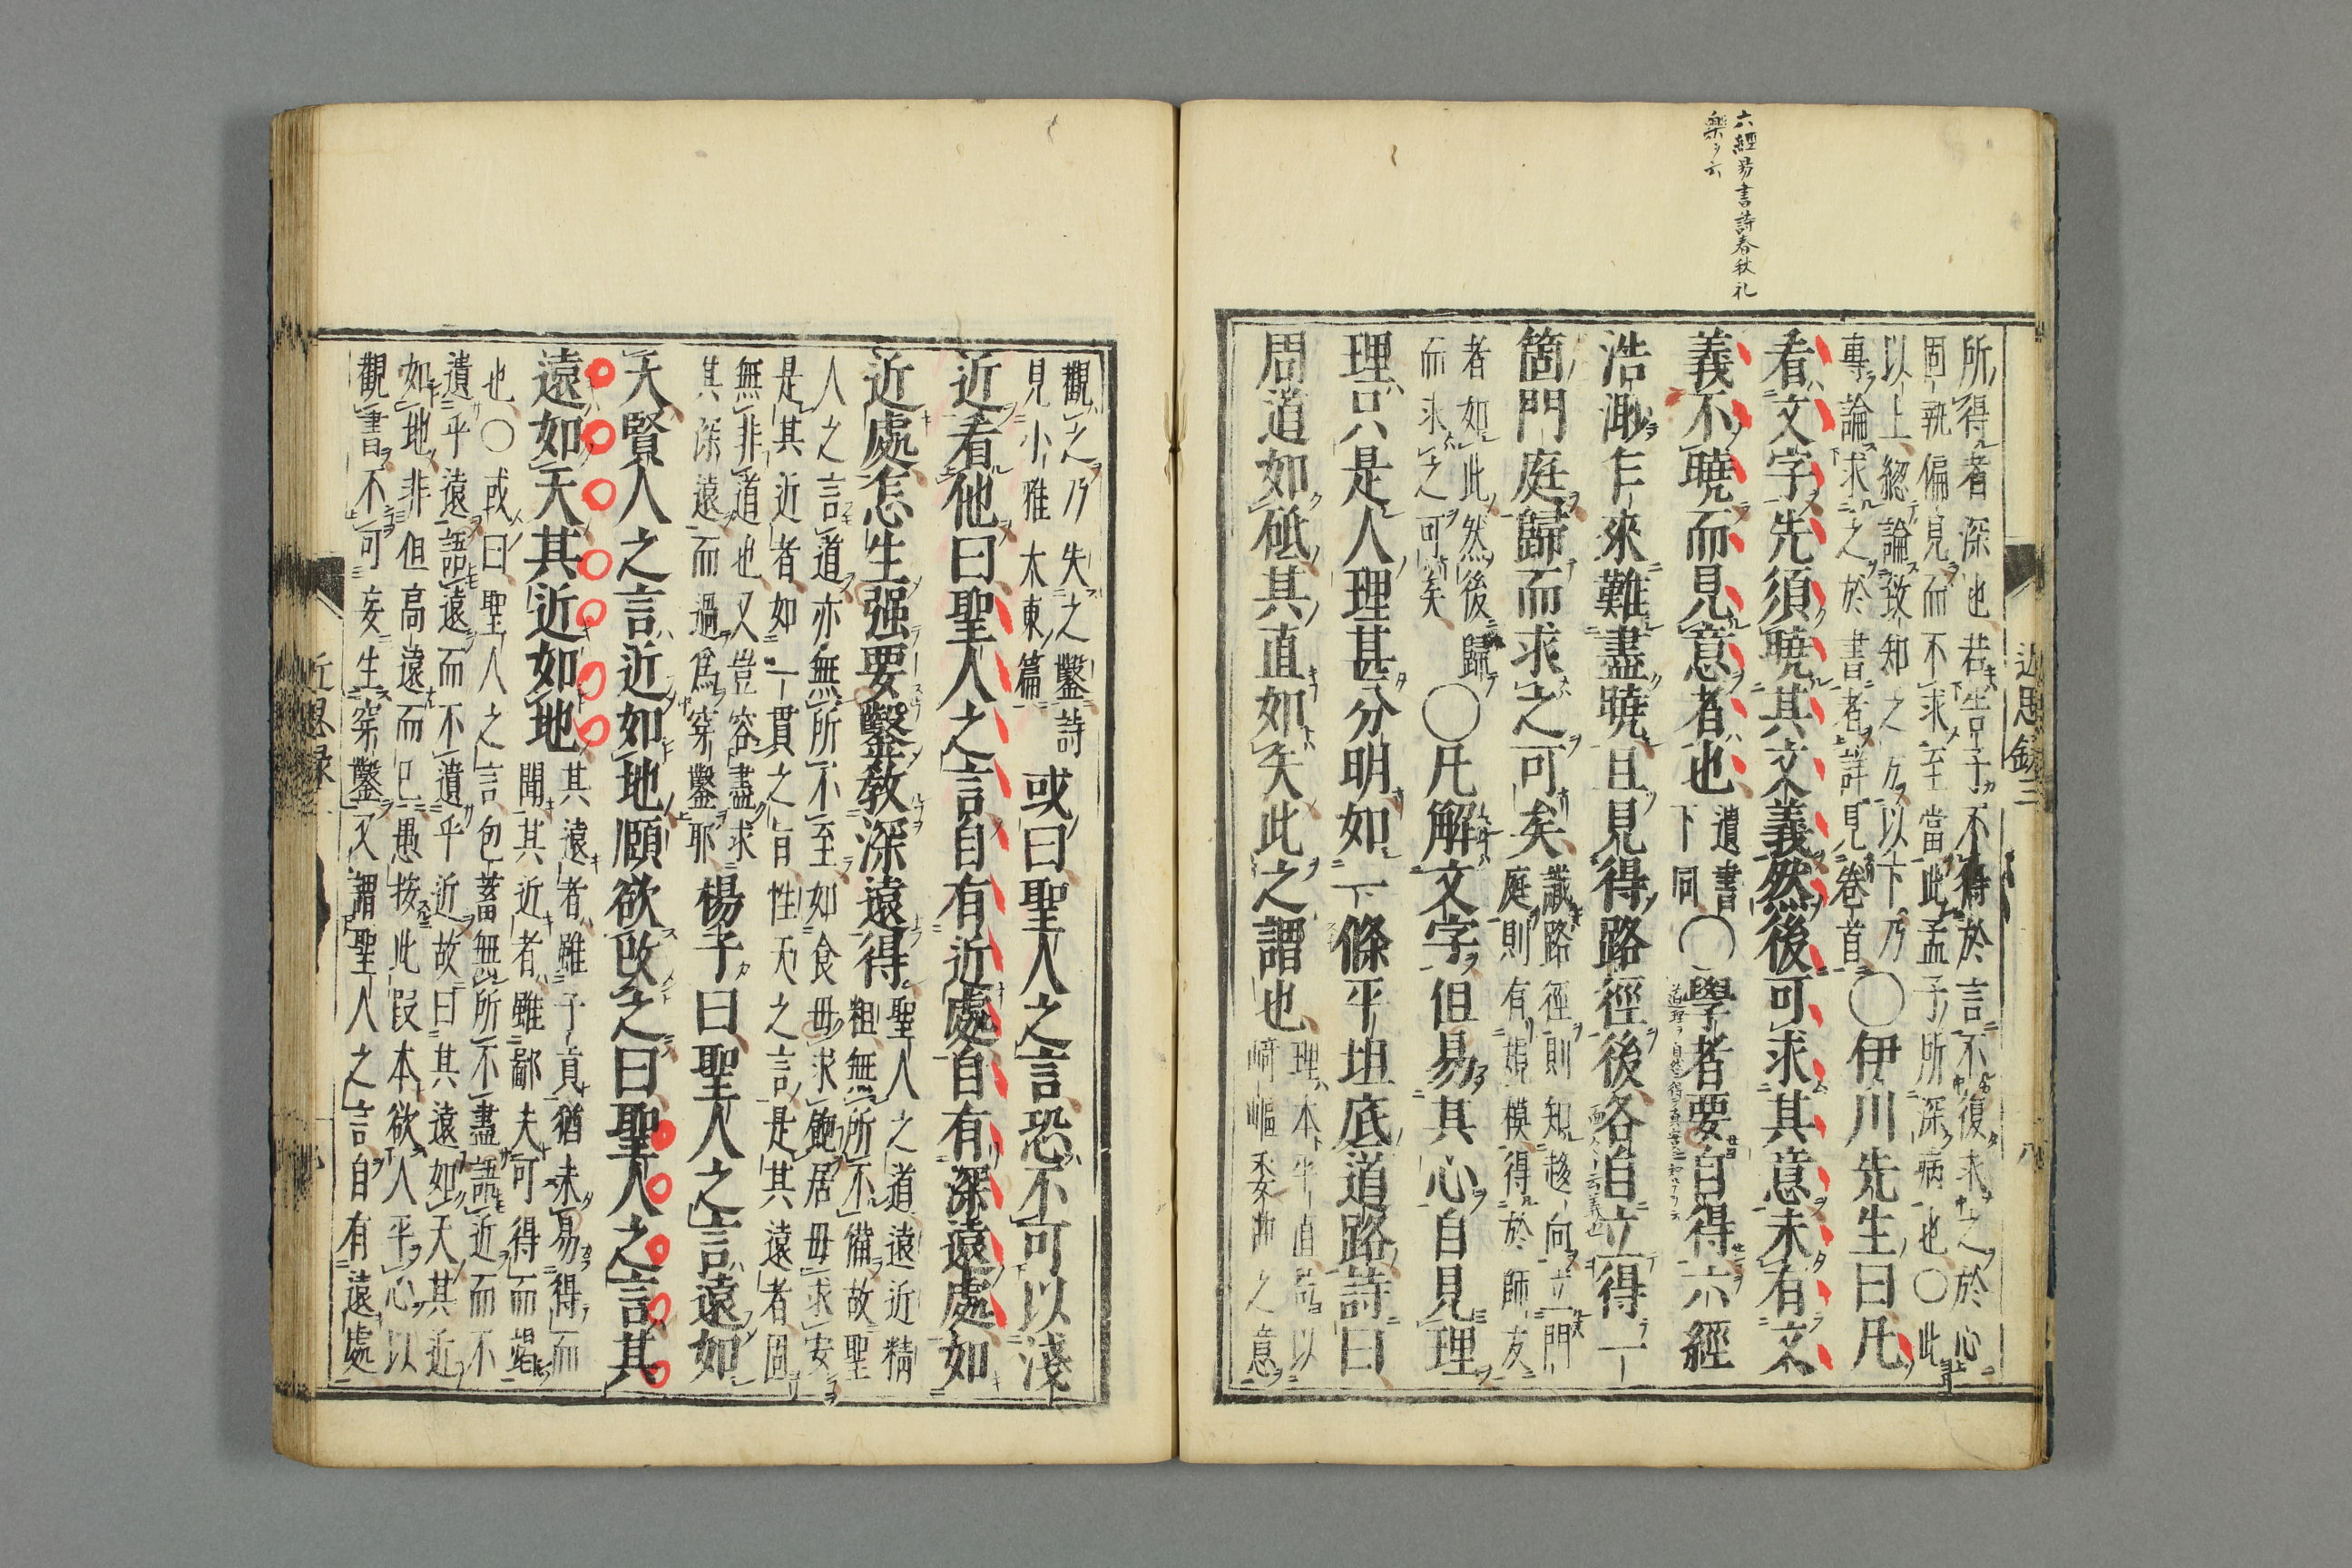 六經易書詩春秋礼
楽ヲ云
近思錄三
八
所得者深也若告子不得於言不復求之於心
固執偏見而不求至當此孟子所深病也○此
以上緫論致知之方以下乃
專論求之於書者詳見卷首
○伊川先生曰凡
看文字先須曉其文義然後可求其意未有文
義不曉而見意者也
遺書
下同
○學者要自得六經
浩渺乍來難盡曉且見得路徑後各自立得一
箇門庭歸而求之可矣
叢路徑則知趍向立門
庭則有規模得於師友
者如此然後歸
而求之可矣
○凡解文字但易其心自見理
理只是人理甚分明如一條平坦底道路詩曰
周道如砥其直如矢此之謂也
理本平直苟以
崎嶇委曲之意
觀之乃失之鑿詩
見小雅大東篇
或曰聖人之言恐不可以淺
近看他曰聖人之言自有近處自有深遠處如
近處怎生强要鑿教深遠得
聖人之道遠近精
粗無所不備故聖
人之言道亦無所不至如食毋求飽居毋求安
是其近者如一貫之旨性天之言是其遠者固
無非道也又豈容盡求
其深遠而過爲穿鑿耶
楊子曰聖人之言遠如
天賢人之言近如地頤欲改之曰聖人之言其
遠如天其近如地
其遠者雖子貢猶未易得而
聞其近者雖鄙夫可得而竭
也○或曰聖人之言包蓄無所不盡語近而不
遺乎遠語遠而不遺乎近故曰其遠如天其近
如地非但高遠而已愚按此段本欲人平心以
觀書不可妄生穿鑿又謂聖人之言自有遠處
近思録